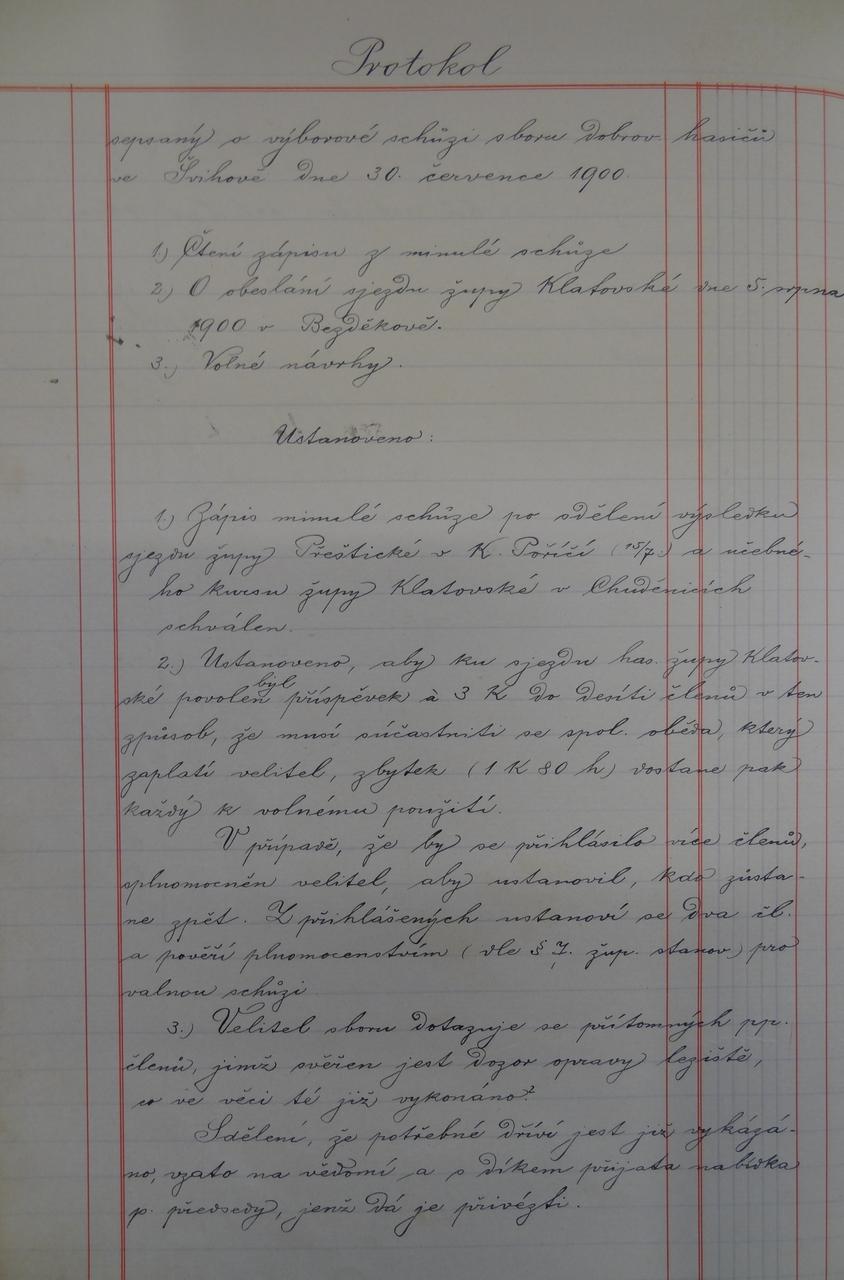 Protokol
sepsaný o výborové schůzi sboru dobrov. hasičů
ve Švihově dne 30. července 1900.
1.) Čtení zápisu z minulé schůze
2.) O obeslání sjezdu župy Klatovské dne 5. srpna
1900 v Bezděkově.
3.) Volné návrhy.
Ustanoveno:
1.) Zápis minulé schůze po sdělení výsledku
sjezdu župy Přeštické v K. Poříčí (15/7.) a učebné-
ho kursu župy Klatovské v Chudenicích
schválen.
2.) Ustanoveno, aby ku sjezdu has. župy Klatov-
byl
ské povolen příspěvek à 3 K do desíti členů v ten
způsob, že musí súčastniti se spol. oběda, který
zaplatí velitel, zbytek (1 K 80 h) dostane pak
každý k volnému použití.
V případě, že by se přihlásilo více členů,
splnomocněn velitel, aby ustanovil, kdo zůsta-
ne zpět. Z přihlášených ustanoví se dva čl.
a pověří plnomocenstvím (dle § 7. žup. stanov) pro
valnou schůzi
3.) Velitel sboru dotazuje se přítomných pp.
členů, jimž svěřen jest dozor opravy leziště,
co ve věci té již vykonáno?
Sdělení, že potřebné dříví jest již vykázá-
no, vzato na vědomí a s díkem přijata nabídka
p. předsedy, jenž dá je přivézti.